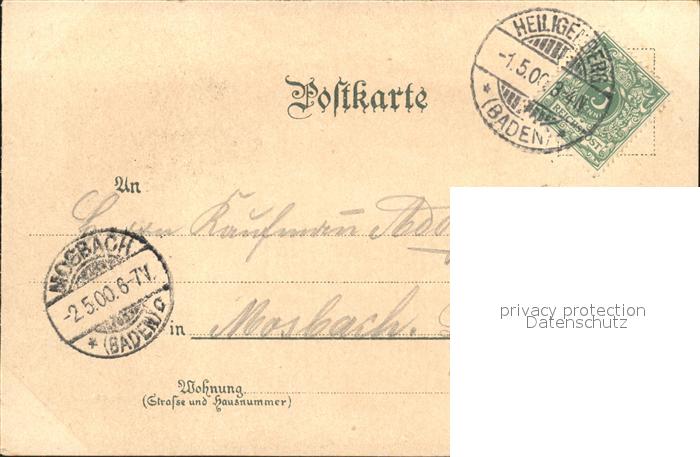 HEILIGENBERG
-1.5.00.3-4N.
* (BADEN) *
5
REICHSPOST
Postkarte
An
Herrn Kaufmann
MOSBACH
-2.5.00.6-7V.
* (BADEN) c
in Mosbach.
Wohnung
(Strasse und Hausnummer)
privacy protection
Datenschutz